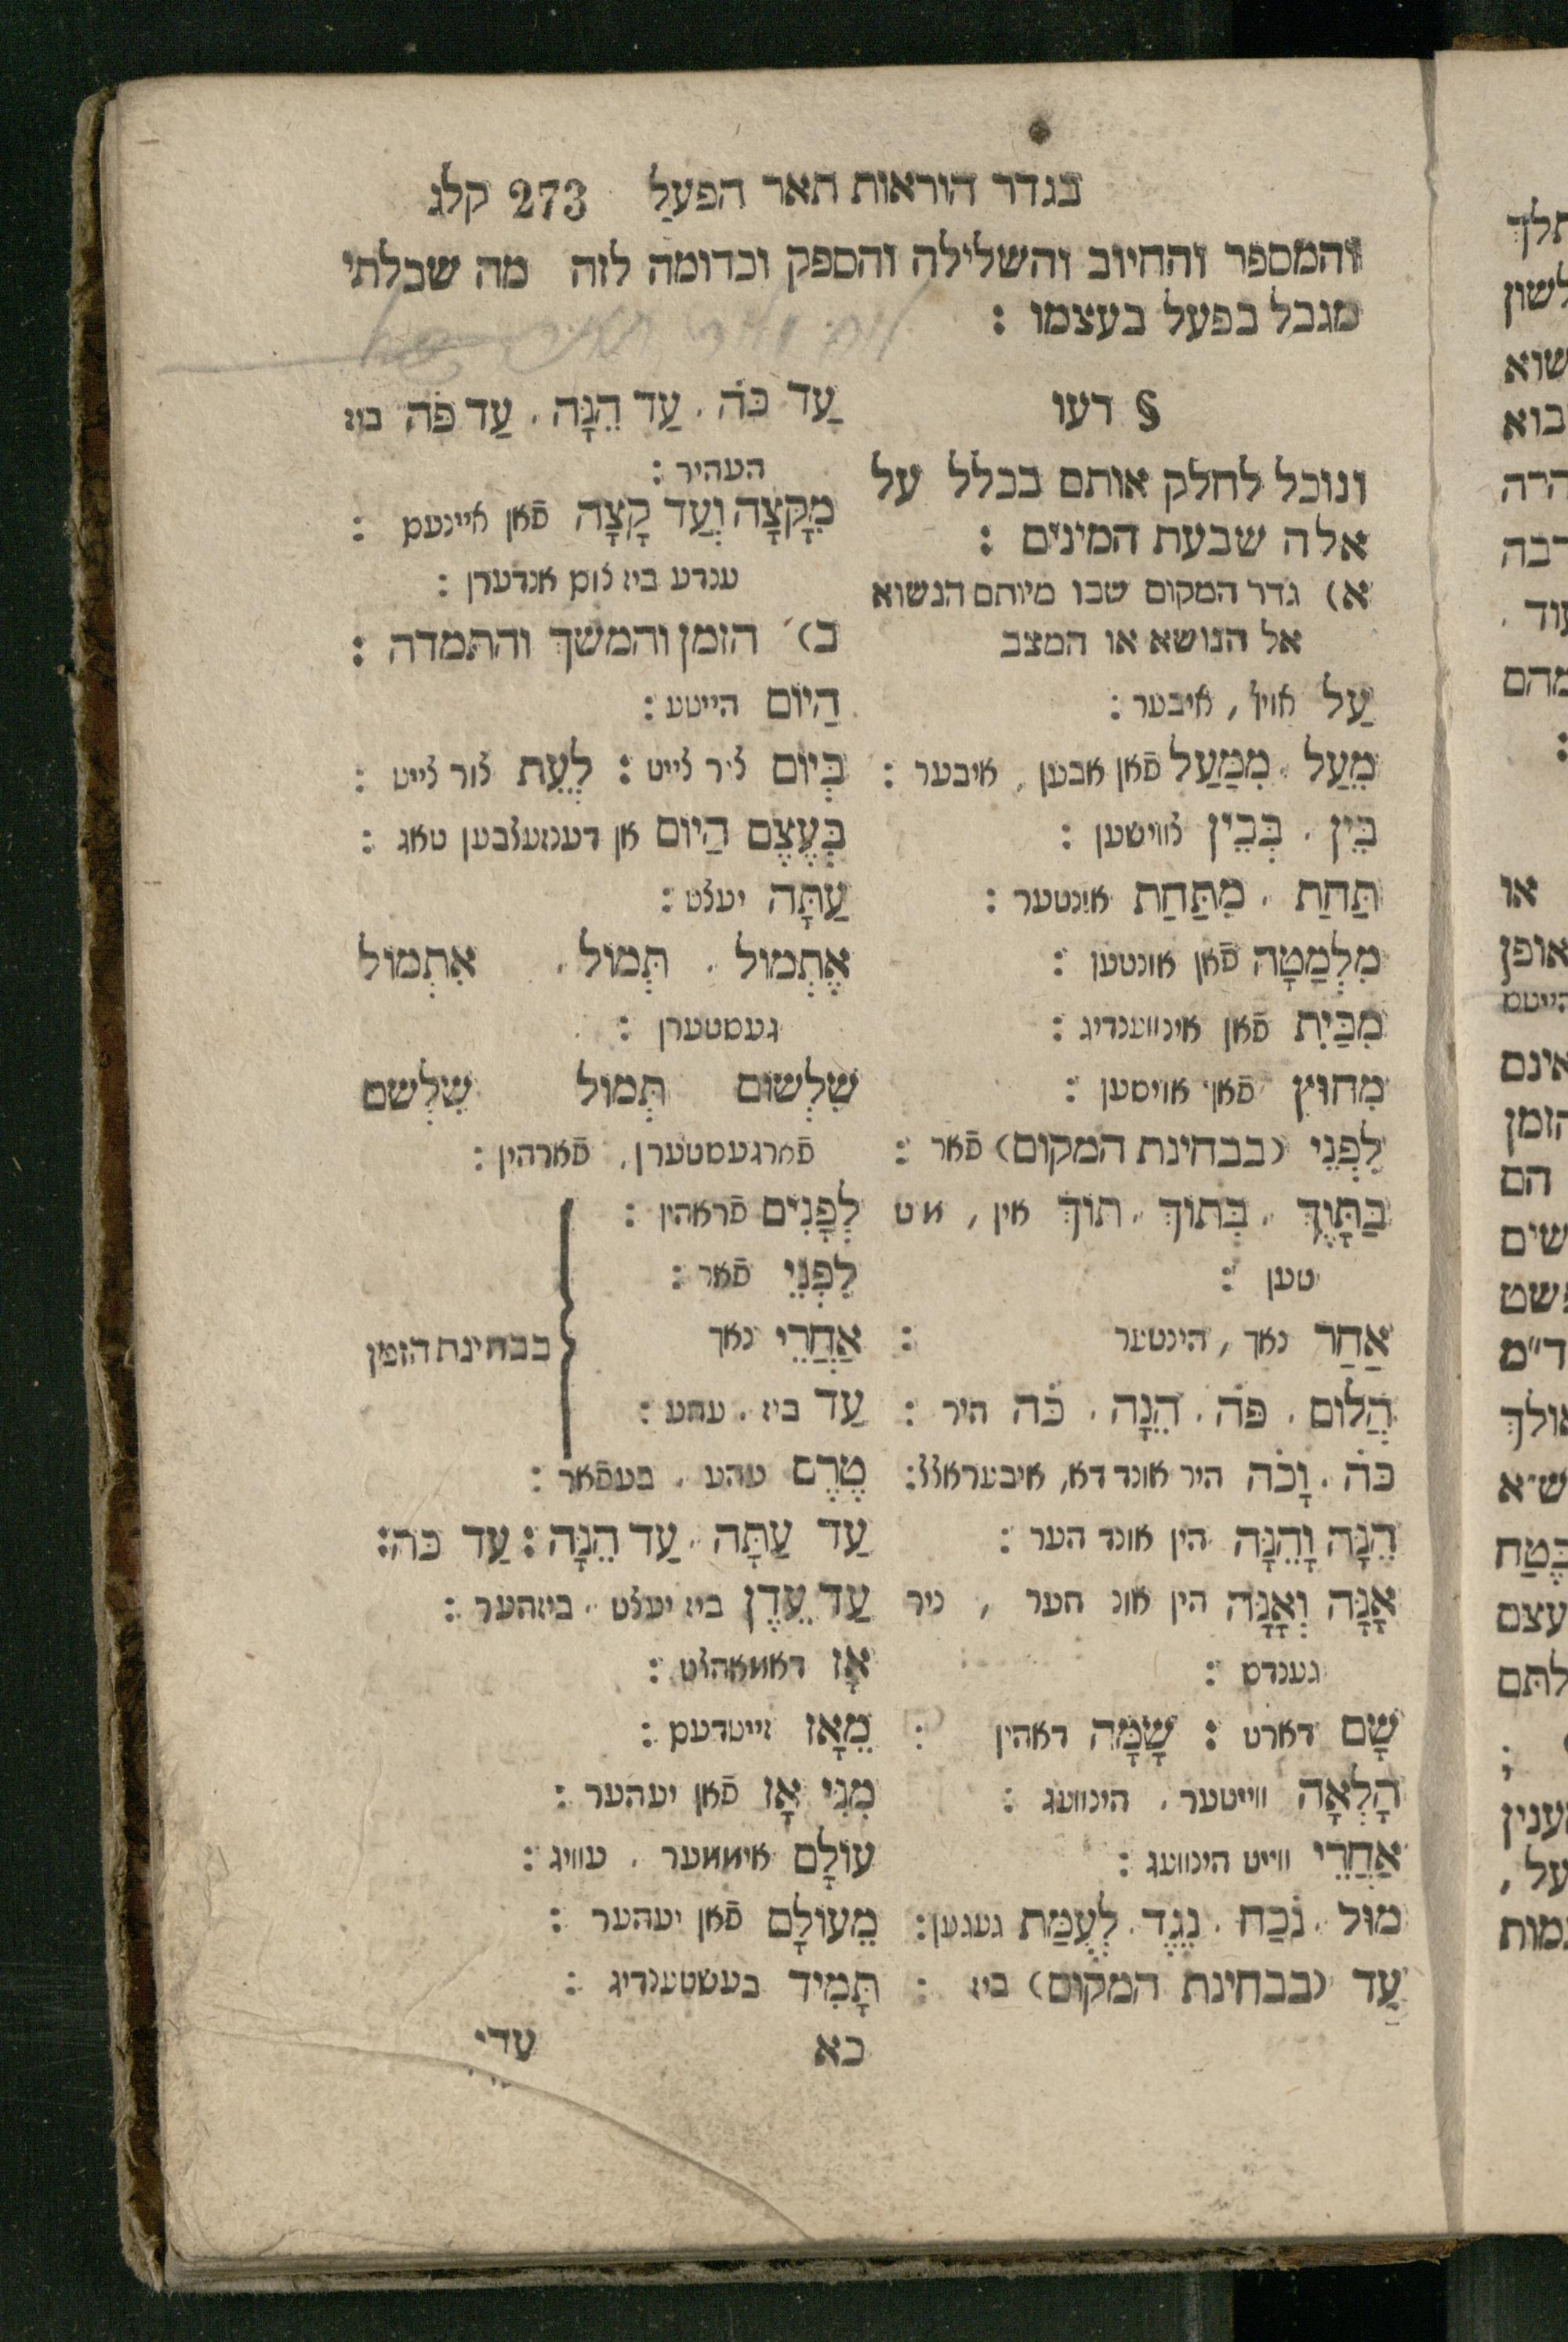 בגדר הוראות תאר הפעל 273 קלג
והמספר והחיוב והשלילה והספק וכדומה לזה מה שבלתי
מגבל בפעל בעצמו :
§ רעו
ונוכל לחלק אותם בכלל על
אלה שבעת המינים :
א) גדר המקום שבו מיותם הנשוא
אל הנושא או המצב
עַל אויף, איבער :
מֵעַל , מִמַּעַל פֿאן אבען , איבער :
בֵּין , בְּבֵין צווישען :
תַּחַת , מִתַּחַת אונטער :
מִלְמַטָה פֿאן אונטען :
מִבַּיִת פֿאן אינווענדיג :
מִחוּץ פֿאן אויסען :
לִפְנֵי (בבחינת המקום) פֿאר :
בַּתָּוֶךְ , בְּתוֹךְ , תוֹךְ אין , מיט
טען :
אַחַר נאך , הינטער :
הֲלוֹם , פֹּה , הֵנָה , כֹּה היר :
כֹּה , וָכֹה היר אונד דא, איבעראלל :
הֵנָּה וָהֵנָּה הין אונד הער :
אָנָּה וְאָנָּה הין אונ הער , ניר
גענדס :
שָׁם דארט : שָׁמָּה דאהין :
הָלְאָה ווייטער , הינוועג :
אַחֲרֵי ווייט הינוועג :
מוּל , נֹכַח , נֶגֶד , לְעֻמַּת געגען :
עַד (בבחינת המקום) ביז :
עַד כֹּה , עַד הֵנָּה , עַד פֹּה ביז
העהיר :
מִקָּצָה וְעַד קָצָה פֿאן איינעם :
ענדע ביז צום אנדערן :
ב) הזמן והמשך והתמדה :
הַיּוֹם הייטע :
בְּיוֹם צור צייט : לְעֵת צור צייט :
בְּעֶצֶם הַיּוֹם אן דעמזעלבען טאג :
עַתָּה יעצט :
אֶתְמוֹל , תְּמוֹל , אִתְמוֹל
געסטערן :
שִׁלְשׁוֹם תְּמוֹל שִׁלְשֹׁם
פֿארגעסטערן , פֿארהין :
לְפָנִים פֿראהין :
לִפְנֵי פֿאר :
אַחֲרֵי נאך
בבחינת הזמן
עַד ביז , עהע :
טֶרֶם עהע , בעפֿאר :
עַד עַתָּה , עַד הֵנָּה : עַד כֹּה :
עַד עֲדֶן ביז יעצט , ביזהער :
אָז דאמאהלס :
מֵאָז זייטדעם :
מִנִּי אָז פֿאן יעהער :
עוֹלָם אימער , עוויג :
מֵעוֹלָם פֿאן יעהער :
תָּמִיד בעשטענדיג :
כא עדי